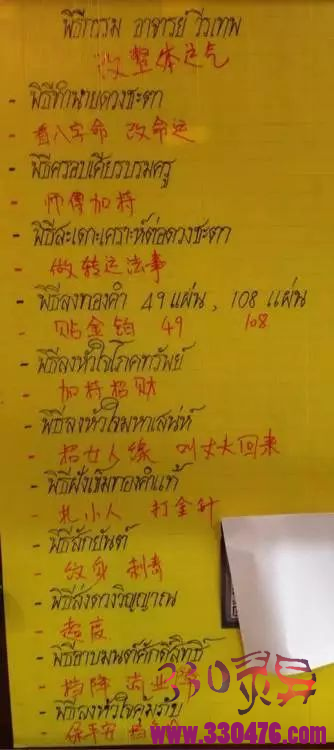 พิธีกรรม อาจารย์ วีรเทพ
改整体运气
- พิธีทำนายดวงชะตา
- 看八字命 改命运
- พิธีครอบเศียรบรมครู
- 师傅加持
- พิธีสะเดาะเคราะห์ต่อดวงชะตา
- 做转运法事
- พิธีลงทองคำ 49 แผ่น , 108 แผ่น
- 贴金铂 49 108
- พิธีลงหัวใจโภคทรัพย์
- 加持招财
- พิธีลงหัวใจมหาเสน่ห์
- 招女人缘 叫丈夫回来
- พิธีฝังเข็มทองคำแท้
- 扎小人 打金针
- พิธีสักยันต์
- 纹身 刺青
- พิธีส่งดวงวิญญาณ
- 超度
- พิธีอาบมนต์ศักดิ์สิทธิ์
- 挡降 消业障
- พิธีลงหัวใจคุ้มภัย
- 保平安 挡
330灵异
www.330476.com